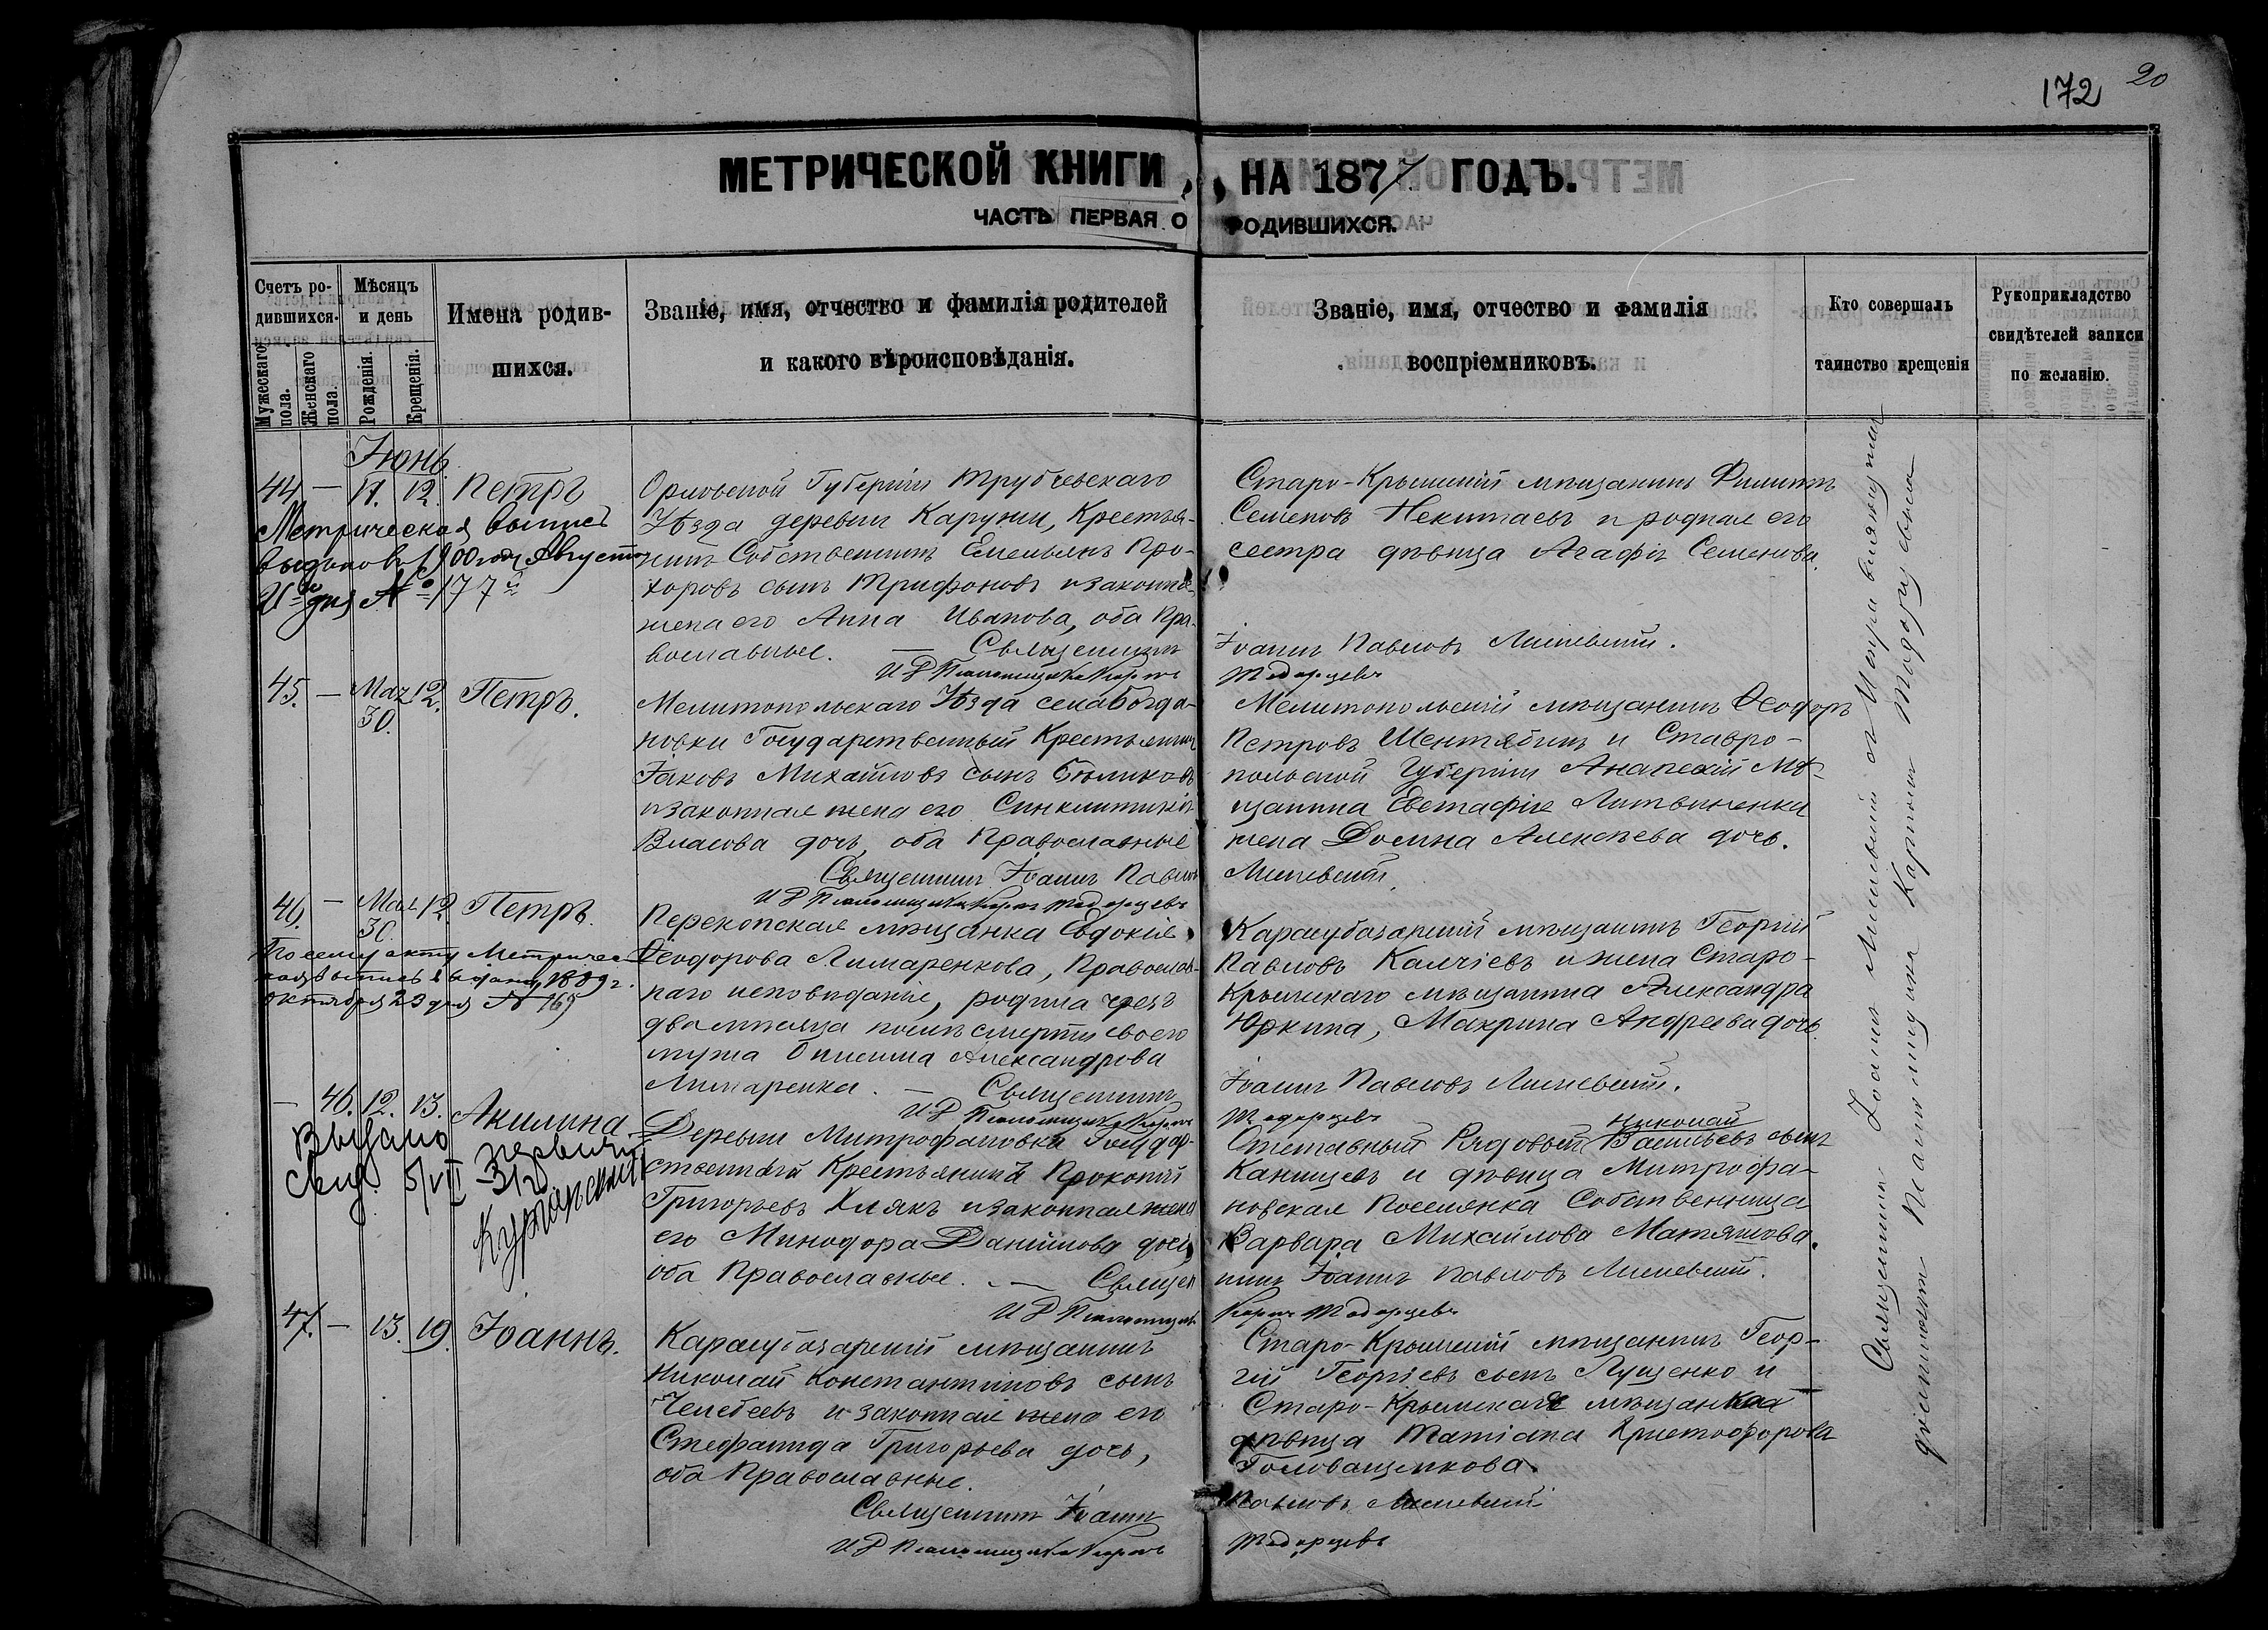 172 20
МЕТРИЧЕСКОЙ КНИГИ, НА 1877 ГОДЪ.
ЧАСТЬ ПЕРВАЯ О РОДИВШИХСЯ.
Счетъ ро-
дившихся.
Мужескаго пола.
Женскаго пола.
Мѣсяцъ
и день
Рожденія.
Крещенія.
Имена родив-
шихся.
Званіе, имя, отчество и фамилія родителей
и какого вѣроисповѣданія.
Званіе, имя, отчество и фамилія
воспріемниковъ.
Кто совершалъ
таинство крещенія
Рукоприкладство
свидѣтелей записи
по желанію.
Іюнь
44. — 11. 12. Петръ
Метрическая выпись
выдана 1900 год Августа
дня № 177
Орловской Губерніи Трубчевскаго
Уѣзда деревни Каружи, Крестья-
нинъ Собственникъ Емельянъ Про-
хоровъ сынъ Трифоновъ и законная
жена его Анна Иванова, оба Пра-
вославные. — Священникъ
Старо-Крымскій мѣщанинъ Филиппъ
Семеновъ Некитаевъ и родная его
сестра дѣвица Агафія Семенова.
Іоаннъ Павловъ
45. — Мая 30. 12. Петръ.
Мелитопольскаго Уѣзда села Богда-
новки Государственный Крестьянинъ
Іаковъ Михайловъ сынъ Бѣликовъ
и законная жена его Синклитикія
Власова дочь, оба Православные
Священникъ Іоаннъ Павловъ
Мелитопольскій мѣщанинъ Ѳеодоръ
Петровъ Шентябинъ и Ставро-
польской Губерніи Анапскій Мѣ-
щанина Евстафія Литвиненки
жена Домна Алексѣева дочь.
46. — Мая 30. 12 Петръ.
По сему акту Метричес-
кая выпись выдана 1889 г.
Октября 23 дня № 169
Перекопская мѣщанка Евдокія
Ѳеодорова Лимаренкова, Православ-
наго исповѣданія, родила чрезъ
два мѣсяца послѣ смерти своего
мужа Онисима Александрова
Лимаренка. — Священникъ
Карасубазарскій мѣщанинъ Георгій
Павловъ Калчіевъ и жена Старо-
Крымскаго мѣщанина Александра
Юркина, Макрина Андреева дочь.
Іоаннъ Павловъ
— 46. 12. 13. Акилина
Выдано
свид. 5/VII
Деревни Митрофановки Государ-
ственный Крестьянинъ Прокопій
Григорьевъ Хлякъ и законная жена
его Минодора Даніилова дочь,
оба Православные. — Священ
Николай
Отставный Рядовый Васильевъ сынъ
Канищевъ и дѣвица Митрофа-
новская Поселянка Собственница
Варвара Михайлова Матяшова.
никъ Іоаннъ Павловъ
47. — 13. 19. Іоаннъ.
Карасубазарскій мѣщанинъ
Николай Константиновъ сынъ
Челебеевъ и законная жена его
Стефанида Григорьева дочь,
оба Православные.
Священникъ Іоаннъ
Старо-Крымскій мѣщанинъ Геор-
гій Георгіевъ сынъ Лущенко и
Старо-Крымская мѣщанка
дѣвица Татіана Христофорова
Головащенкова.
Павловъ
Священникъ Іоаннъ